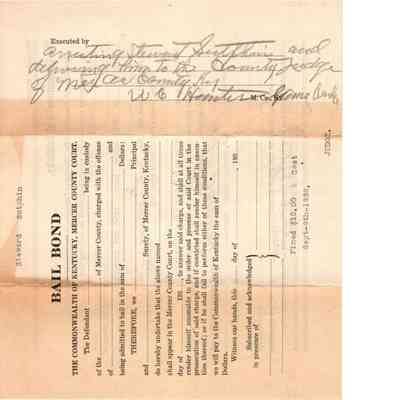 Executed by
arresting Steward Sutphin and
delivering him to the County Judge
of Mercer County Ky
W C
Steward Sutphin
BAIL BOND
THE COMMONWEALTH OF KENTUCKY, MERCER COUNTY COURT.
The Defendant being in custody
of the of Mercer County, charged with the offense
of and
being admitted to bail in the sum of Dollars:
THEREFORE, we Principal
and Surety, of Mercer County, Kentucky,
do hereby undertake that the above named
shall appear in the Mercer County Court, on the
day of 193 , to answer said charge, and shall at all times
render himself amenable to the order and process of said Court in the
prosecution of said charge, and if convicted shall render himself in execu-
tion thereof; or if he shall fail to perform either of these conditions, that
we will pay to the Commonwealth of Kentucky the sum of
Dollars.
Witness our hands, this day of , 193
Subscribed and acknowledged
in presence of
Fined $10.00 & Cost
Sept-9th-1938,
JUDGE.